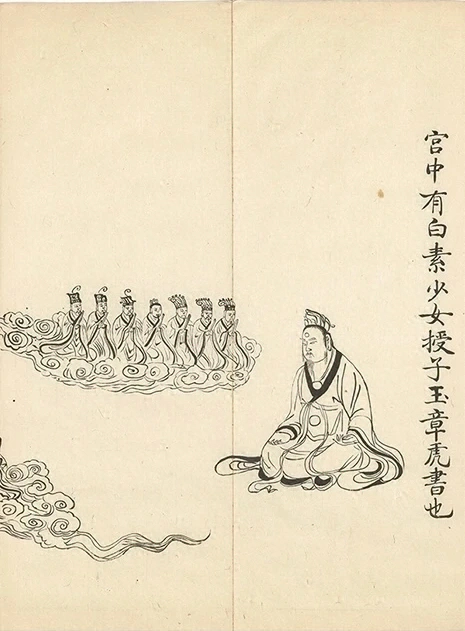 宫中有白素少女授子玉章虎書也